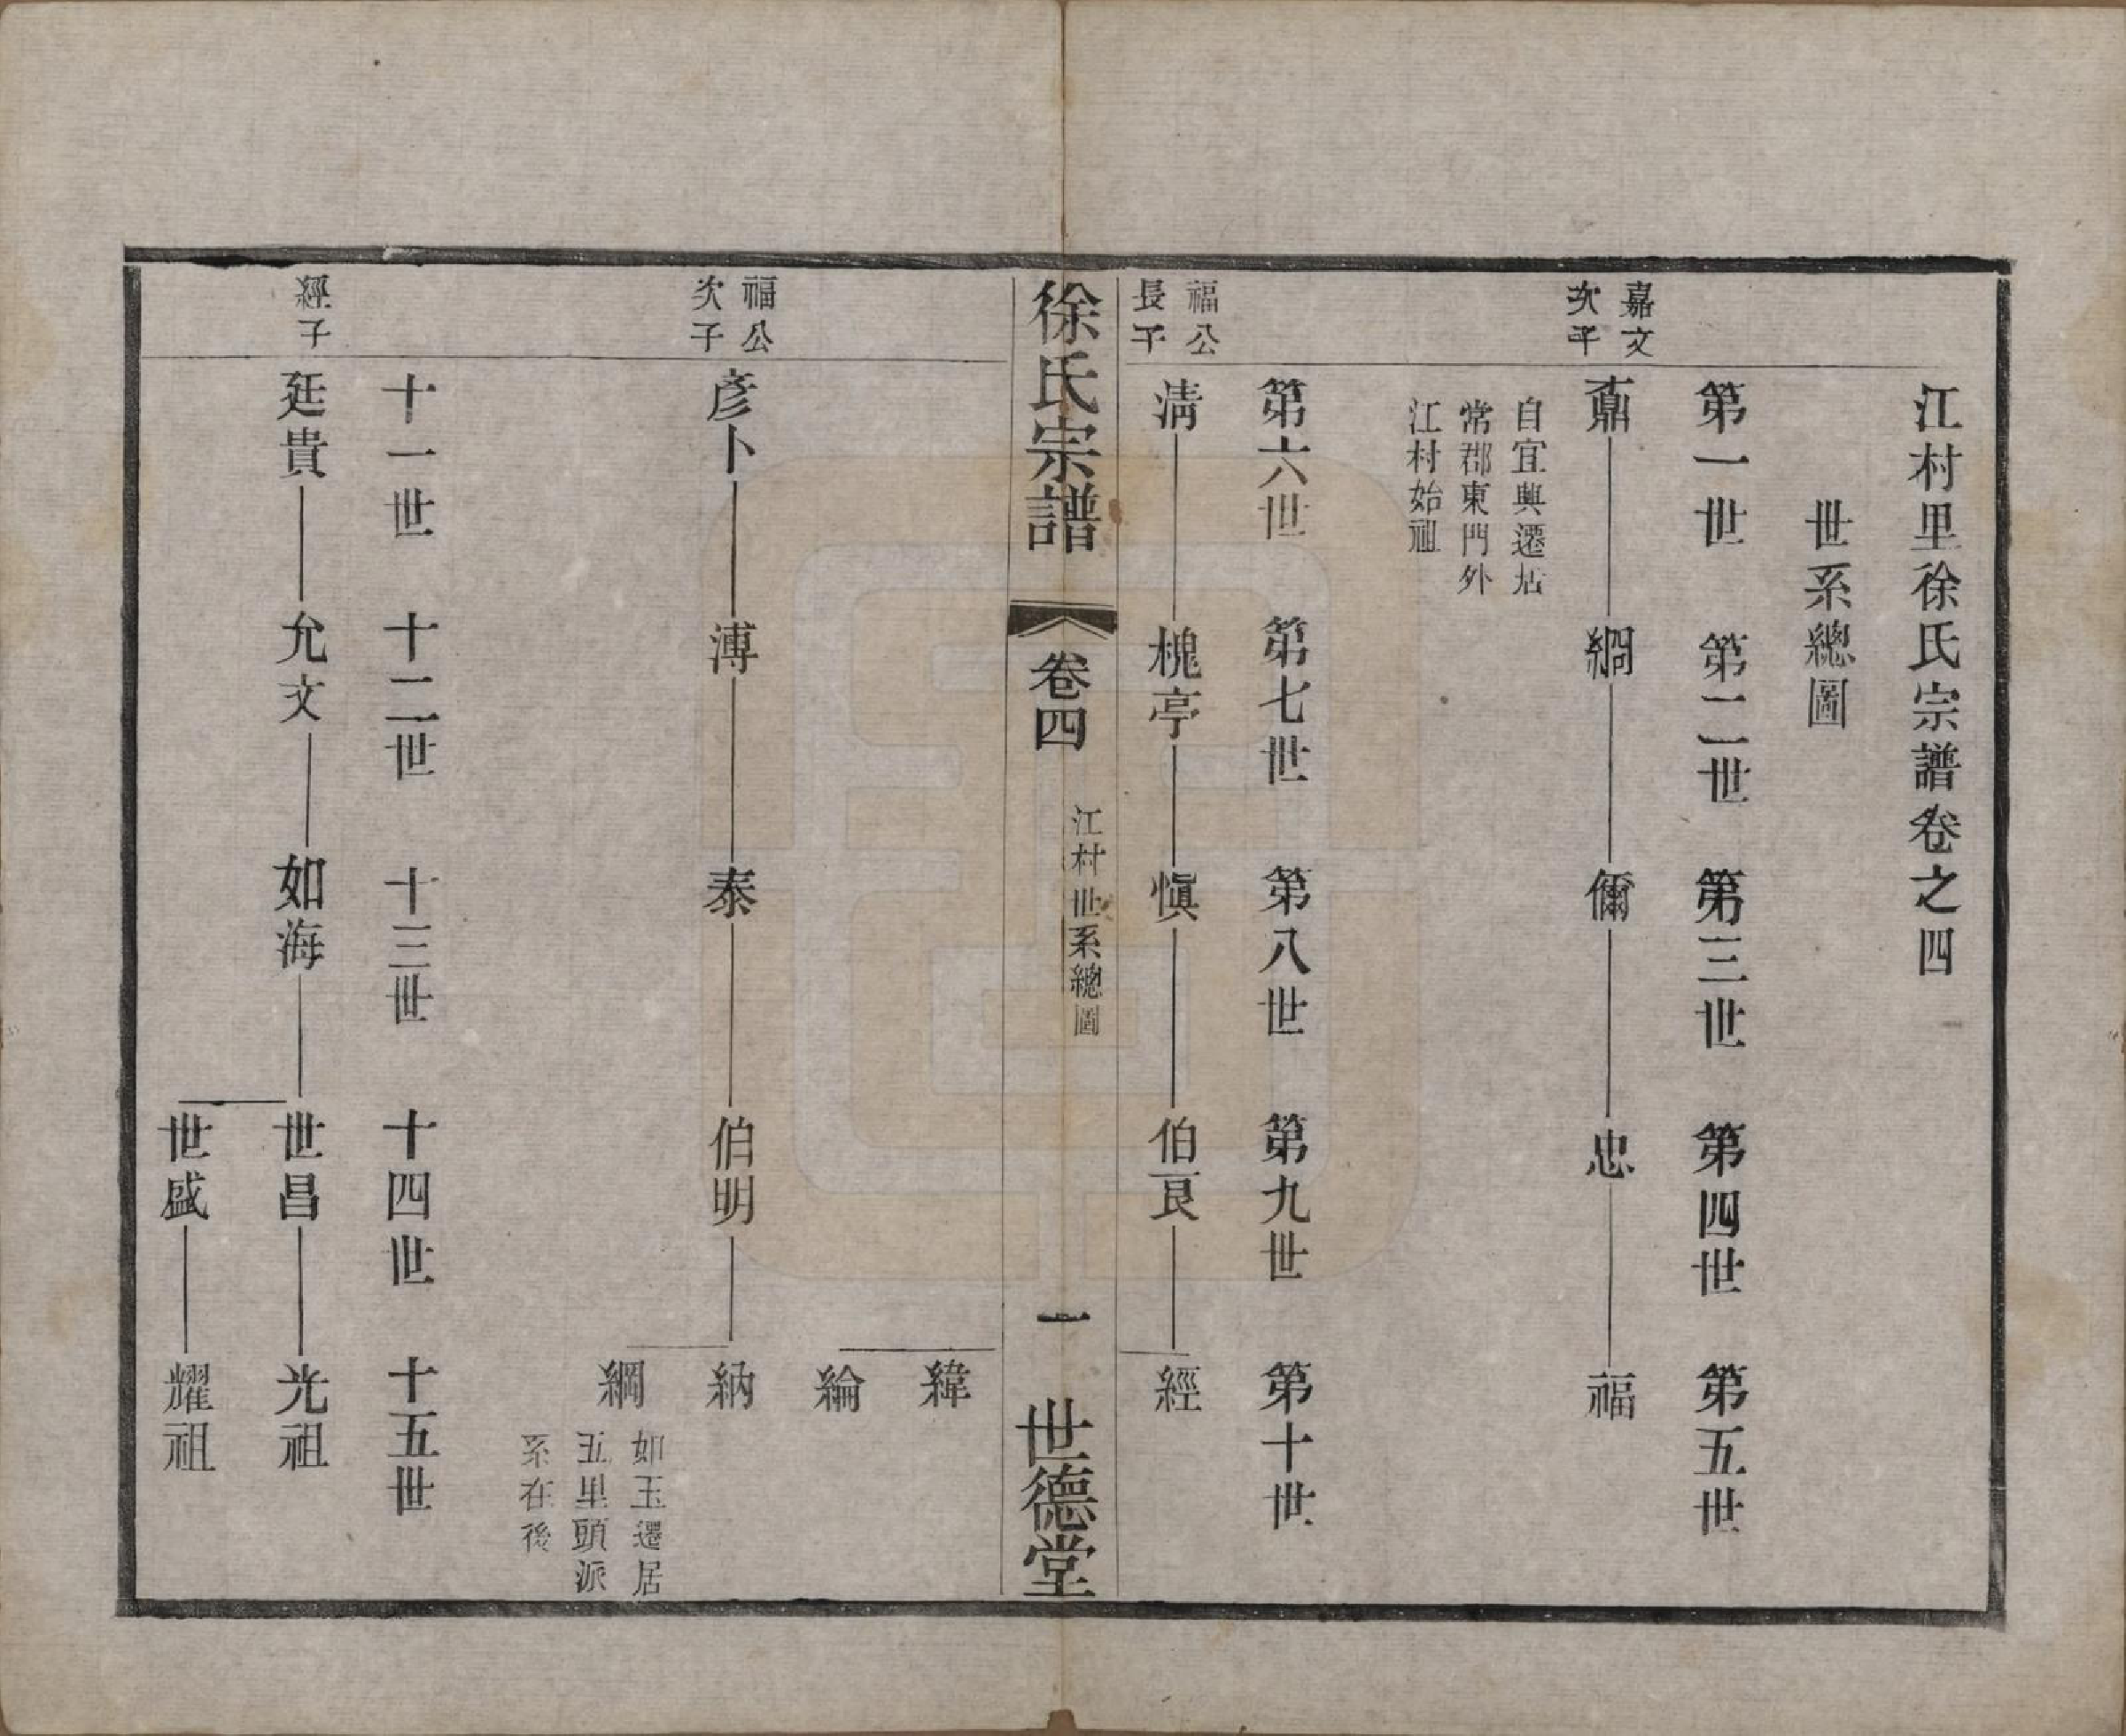 江村里徐氏宗譜卷之四
世系總圖
第一世　第二世　第三世　第四世　第五世
嘉文
次子
鼐　綱　儞　忠　福
自宜興遷居
常郡東門外
江村始祖
第六世　第七世　第八世　第九世　第十世
福公
長子
清　槐亭　愼　伯良　經
徐氏宗譜　卷四　江村世系總圖　一　世德堂
緯
綸
福公
次子
彥卜　溥　泰　伯明　納
綱
如玉遷居
頭派
系在後
十一世　十二世　十三世　十四世　十五世
經子
廷貴　允文　如海　世昌　光祖
世盛　耀祖